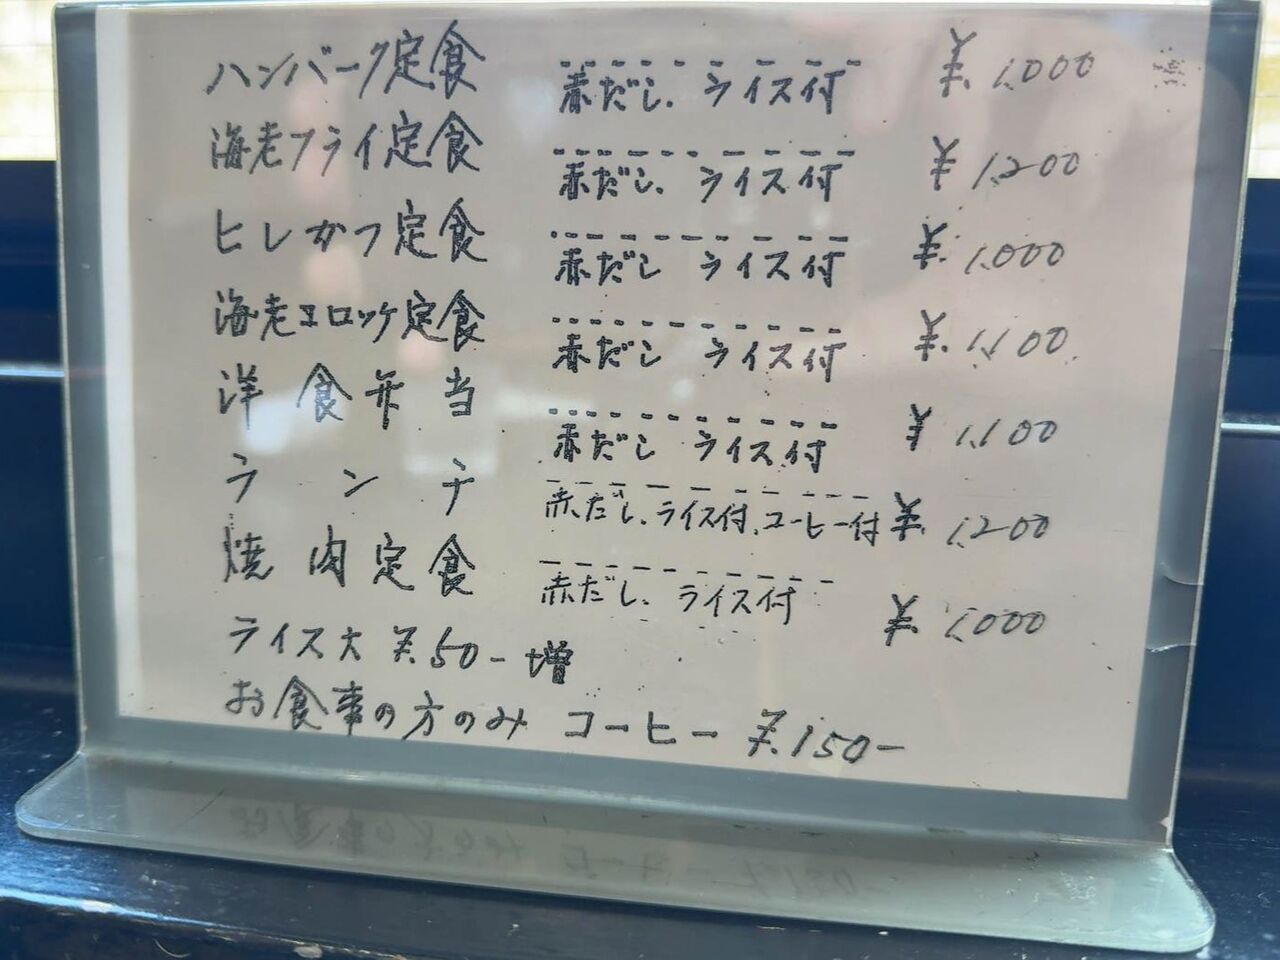 ハンバーク定食 赤だし、ライス付 ¥1,000
海老フライ定食 赤だし、ライス付 ¥1,200
ヒレかつ定食 赤だし ライス付 ¥1,000
海老コロッケ定食 赤だし ライス付 ¥1,100
洋食弁当 赤だし ライス付 ¥1,100
ランチ 赤だし、ライス付、コーヒー付 ¥1,200
焼肉定食 赤だし、ライス付 ¥1,000
ライス大 ¥50-増
お食事の方のみ コーヒー ¥150-